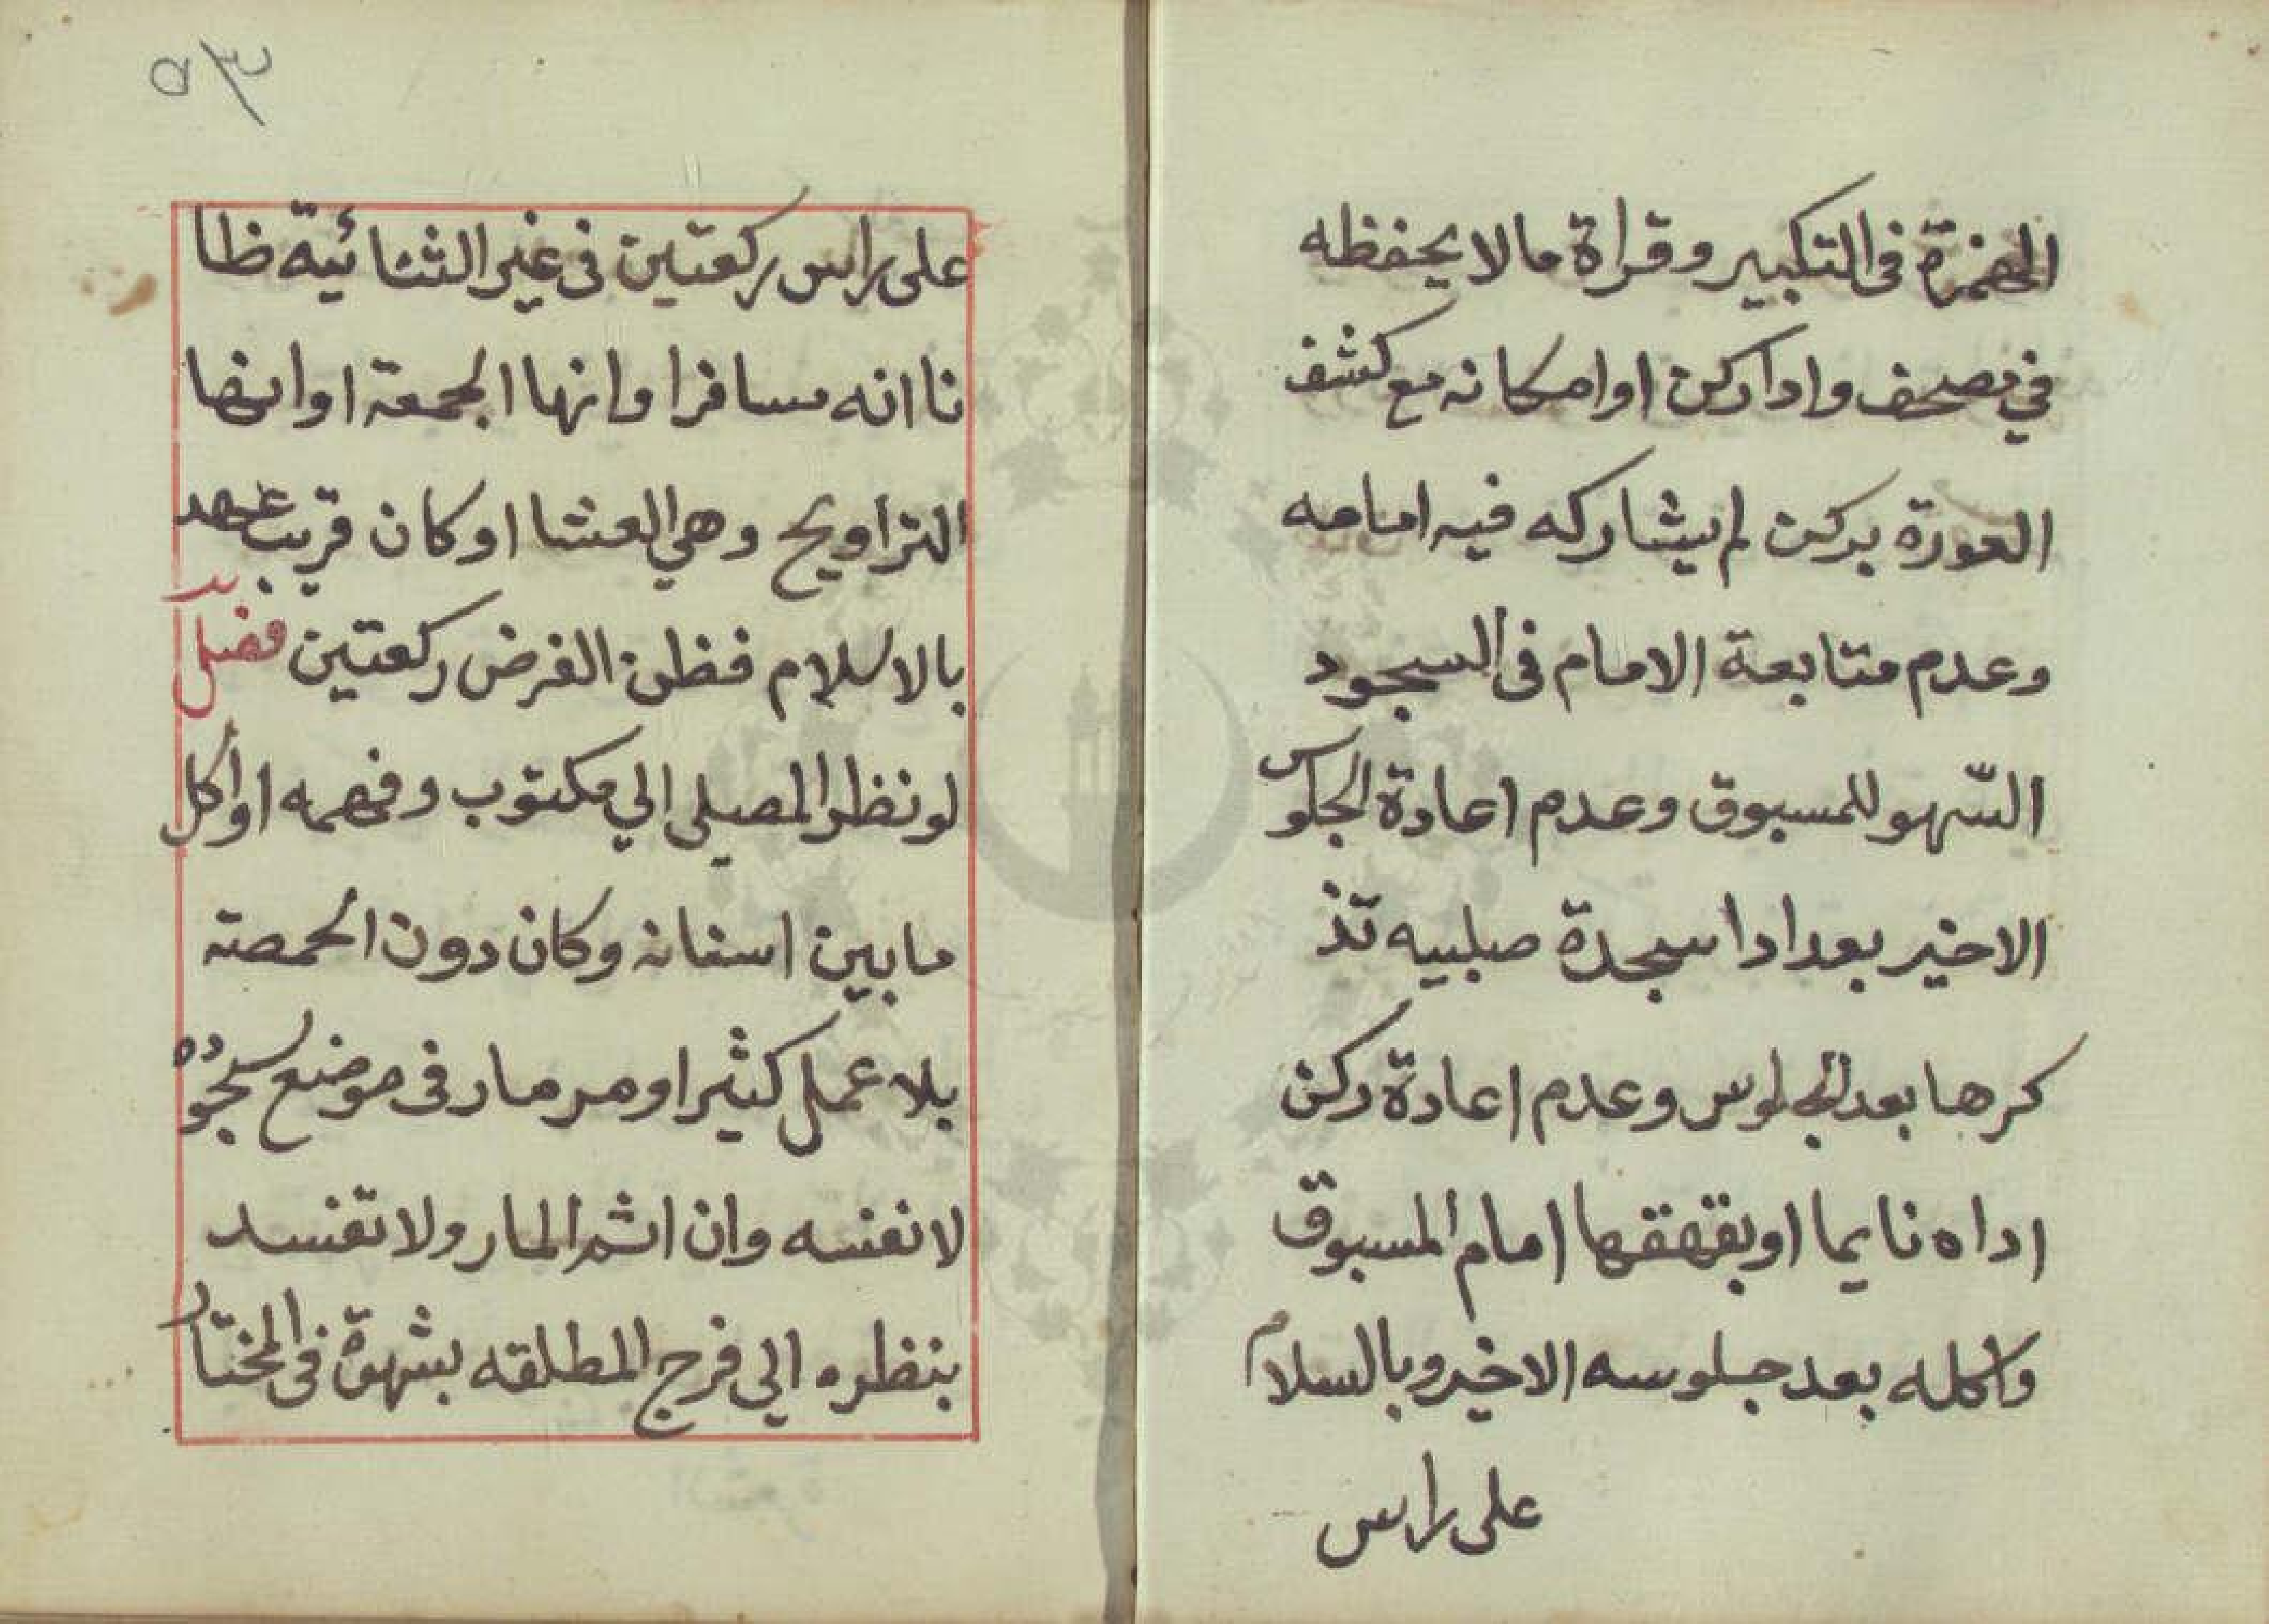 الهمزة فى التكبير وقراة مالا يحفظه
في مصحف واداركن اوامكانه مع كشف
العورة بركن لم يشاركه فيه امامه
وعدم متابعة الامام فى السجود
السّهو للمسبوق وعدم اعادة الجلوس
الاخير بعد ادا سجدة صلبيه تذ
كرها بعد الجلوس وعدم اعادة ركن
اداه نايما او بقهقهة امام المسبوق
وان كمله بعد جلوسه الاخير وبالسلام
على راس
٥٣
على راس ركعتين فى غير الثنائية ظا
نا انه مسافرا وانها الجمعة او انها
التراويح وهي العشا او كان قريب عهد
بالاسلام فظن الفرض ركعتين فصل
لو نظر المصلى الي مكتوب وفهمه او اكل
ما بين اسنانه وكان دون الحمصته
بلا عمل كثير او مر مار فى موضع سجوده
لا تفسد وان اثم المار ولا تفسد
بنظره الي فرج المطلقه بشهوة فى المختار